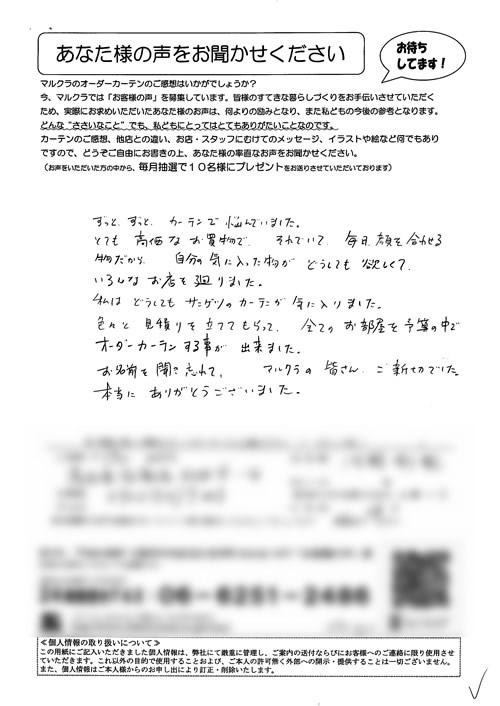 あなた様の声をお聞かせください
お待ち
してます!
マルクラのオーダーカーテンのご感想はいかがでしょうか?
今、マルクラでは「お客様の声」を募集しています。皆様のすてきな暮らしづくりをお手伝いさせていただく
ため、実際にお求めいただいたあなた様のお声は、何よりの励みとなり、また私どもの今後の参考となります。
どんな“ささいなこと”でも、私どもにとってはとてもありがたいことなのです。
カーテンのご感想、他店との違い、お店・スタッフにむけてのメッセージ、イラストや絵など何でもあり
ですので、どうぞご自由にお書きの上、あなた様の率直なお声をお聞かせください。
(お声をいただいた方の中から、毎月抽選で10名様にプレゼントをお送りさせていただいております)
ずっと、ずっと、カーテンで悩んでいました。
とても高価なお買物で、それでいて、毎日顔を合わせる
物だから、自分の気に入った物がどうしても欲しくて、
いろんなお店を廻りました。
私はどうしてもサンゲツのカーテンが気に入りました。
色々と見積りを立ててもらって、全てのお部屋を予算の中で
オーダーカーテンする事が出来ました。
お名前を聞き忘れて、マルクラの皆さん、ご親切でした。
本当にありがとうございました。
06-6251-2486
≪個人情報の取り扱いについて≫
この用紙にご記入いただきました個人情報は、弊社にて厳重に管理し、ご案内の送付ならびにお客様へのご連絡に限り使用させ
ていただきます。これ以外の目的で使用することおよび、ご本人の許可無く外部への開示・提供することは一切ございません。
また、個人情報はご本人様からのお申し出により訂正・削除いたします。